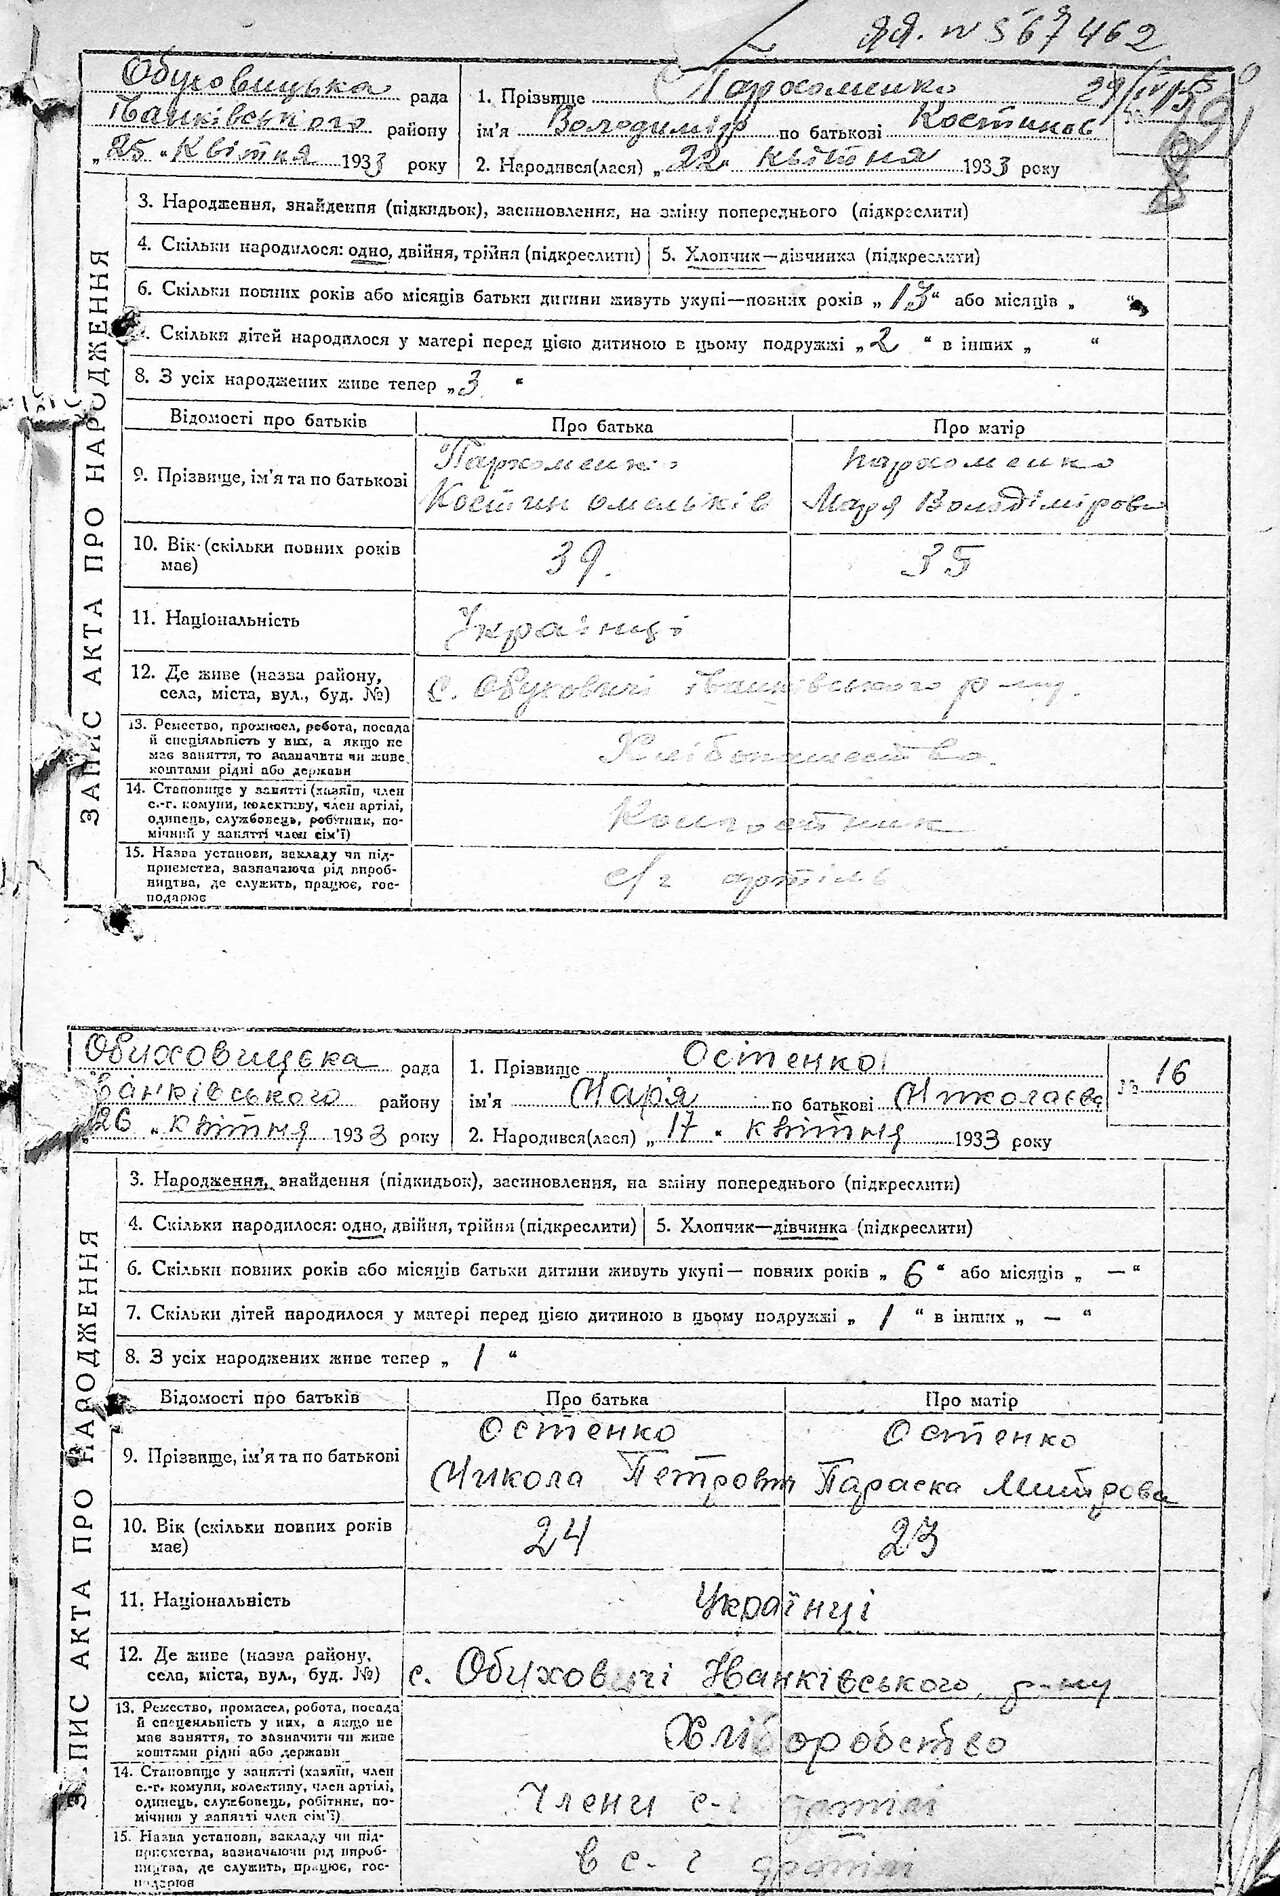 ЯЯ. N 567462
Обуховицька рада
Іванківського району
„25" Квітня 1933 року
1. Прізвище Пархоменко
ім'я Володимір по батькові Костинов
2. Народився(лася) „22" квітня 1933 року
ЗАПИС АКТА ПРО НАРОДЖЕННЯ
3. Народження, знайдення (підкидьок), засиновлення, на зміну попереднього (підкреслити)
4. Скільки народилося: одно, двійня, трійня (підкреслити) 5. Хлопчик—дівчинка (підкреслити)
6. Скільки повних років або місяців батьки дитини живуть укупі—повних років „13" або місяців „ "
Скільки дітей народилося у матері перед цією дитиною в цьому подружжі „2" в інших „ "
8. З усіх народжених живе тепер „3"
Відомості про батьків Про батька Про матір
9. Прізвище, ім'я та по батькові
Пархоменко
Костин омельків
пархоменко
Маря Володімірова
10. Вік (скільки повних років має) 39. 35
11. Національність Українці
12. Де живе (назва району,
села, міста, вул., буд. №) с. Обуховичі іванківського р-ну.
13. Ремество, промисел, робота, посада
й спеціяльність у них, а якщо не
має заняття, то зазначити чи живе
коштами рідні або держави
Хлібопашество.
14. Становище у занятті (хазяїн, член
с.-г. комуни, колективу, член артілі,
одинець, службовець, робітник, по-
мічний у занятті член сім'ї)
Колгостник
15. Назва установи, закладу чи під-
приємства, зазначаюча рід вироб-
ництва, де служить, працює, гос-
подарює
с/г артіль
Обиховицька рада
Іванківського району
„26" квітня 1933 року
1. Прізвище Остенко
ім'я Мар'я по батькові Миколаєва
2. Народився(лася) „17" квітня 1933 року
№ 16
ЗАПИС АКТА ПРО НАРОДЖЕННЯ
3. Народження, знайдення (підкидьок), засиновлення, на зміну попереднього (підкреслити)
4. Скільки народилося: одно, двійня, трійня (підкреслити) 5. Хлопчик—дівчинка (підкреслити)
6. Скільки повних років або місяців батьки дитини живуть укупі— повних років „6" або місяців „—"
7. Скільки дітей народилося у матері перед цією дитиною в цьому подружжі „1" в інших „—"
8. З усіх народжених живе тепер „1"
Відомості про батьків Про батька Про матір
9. Прізвище, ім'я та по батькові
Остенко
Микола Петрович
Остенко
Параска Митрова
10. Вік (скільки повних років має) 24 23
11. Національність Українці
12. Де живе (назва району,
села, міста, вул., буд. №) с. Обиховичі Іванківського, р-ну
13. Ремество, промисел, робота, посада
й спеціяльність у них, а якщо не
має заняття, то зазначити чи живе
коштами рідні або держави
Хліборобство
14. Становище у занятті (хазяїн, член
с.-г. комуни, колективу, член артілі,
одинець, службовець, робітник, по-
мічний у занятті член сім'ї)
Члени с-г артілі
15. Назва установи, закладу чи під-
приємства, зазначаючи рід вироб-
ництва, де служить, працює, гос-
подарює
в с-г артілі